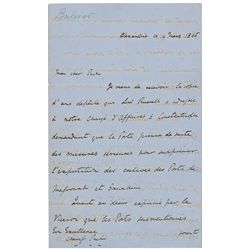 Alexandrie le 4 Mars 1866
Mon cher
Je viens de recevoir la copie
d'une dépêche que Lord Russell a adressée
à notre Chargé d'Affaires à Constantinople
demandant que la Porte prenne de suite
des mesures sérieuses pour supprimer
l'exportation des esclaves des Ports de
et Souakim
Quant au désir exprimé par le
Viceroi que les Ports
Son Excellence